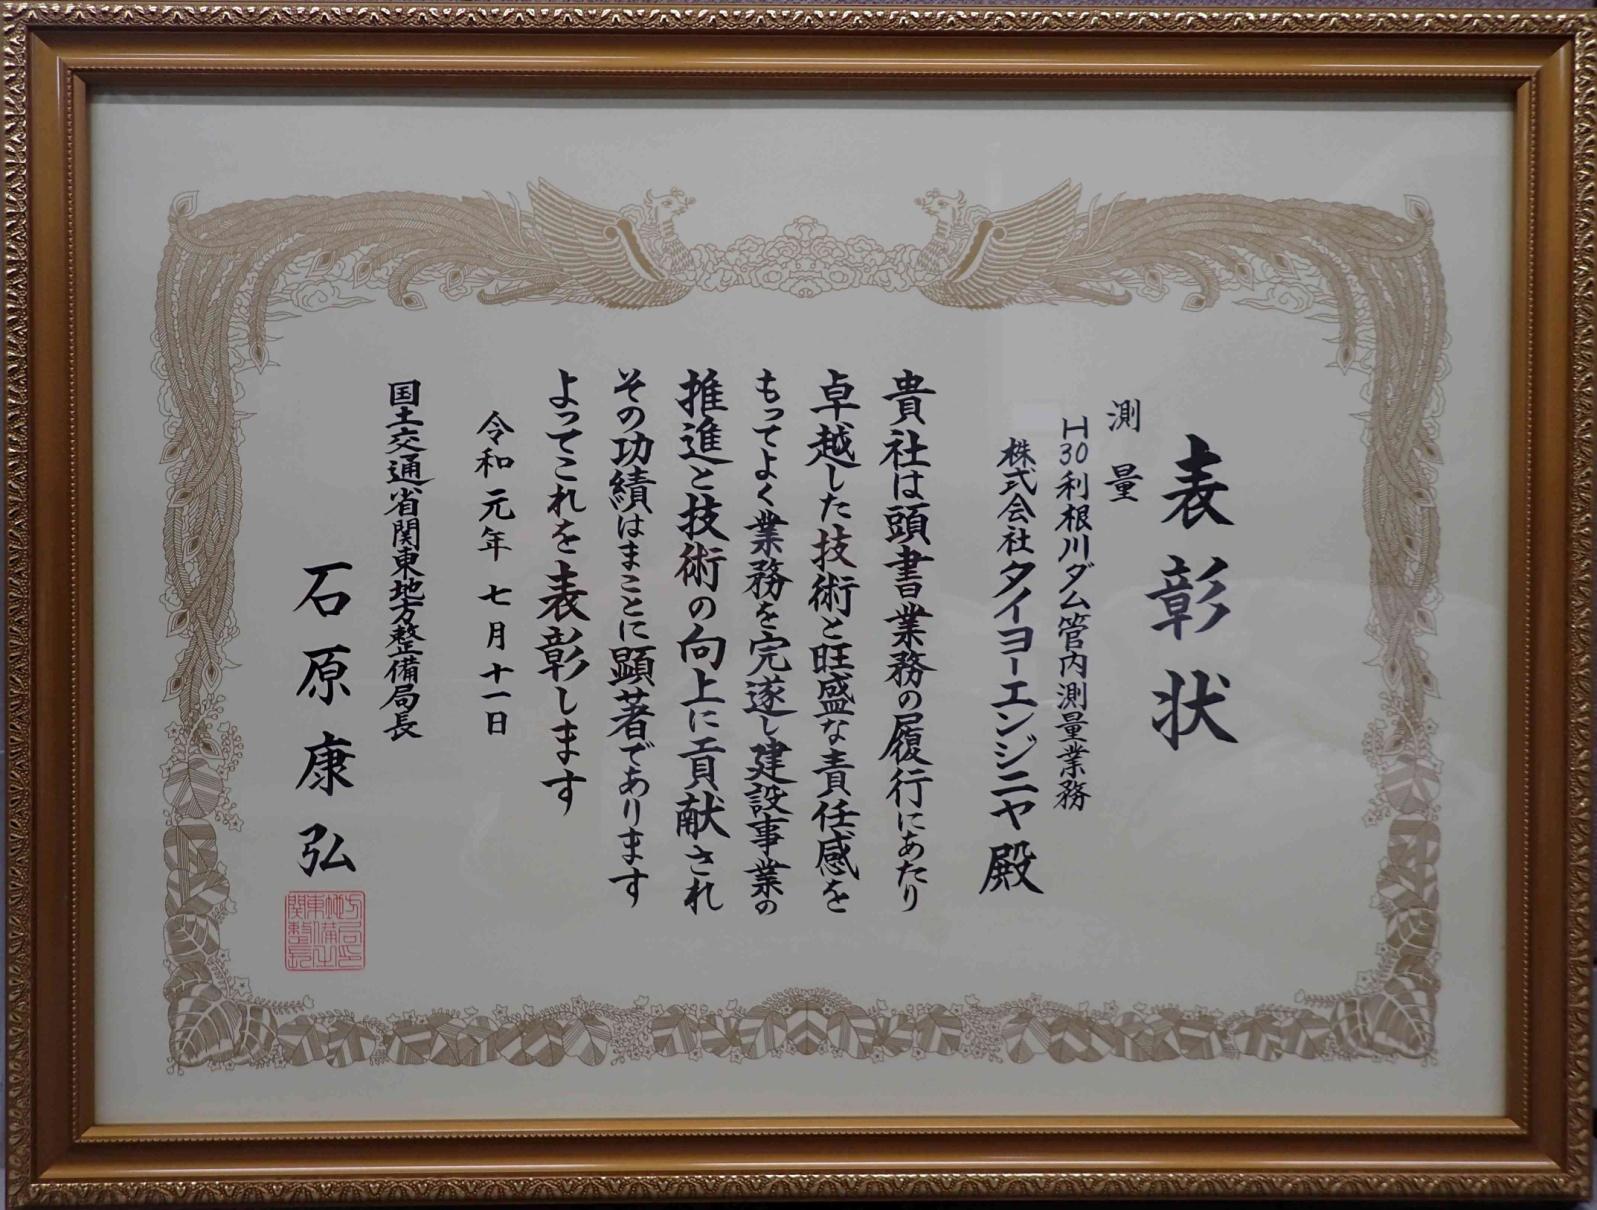 表彰状
測量
H30利根川ダム管内測量業務
株式会社タイヨーエンジニヤ殿
貴社は頭書業務の履行にあたり
卓越した技術と旺盛な責任感を
もってよく業務を完遂し建設事業の
推進と技術の向上に貢献され
その功績はまことに顕著であります
よってこれを表彰します
令和元年七月十一日
国土交通省関東地方整備局長
石原康弘